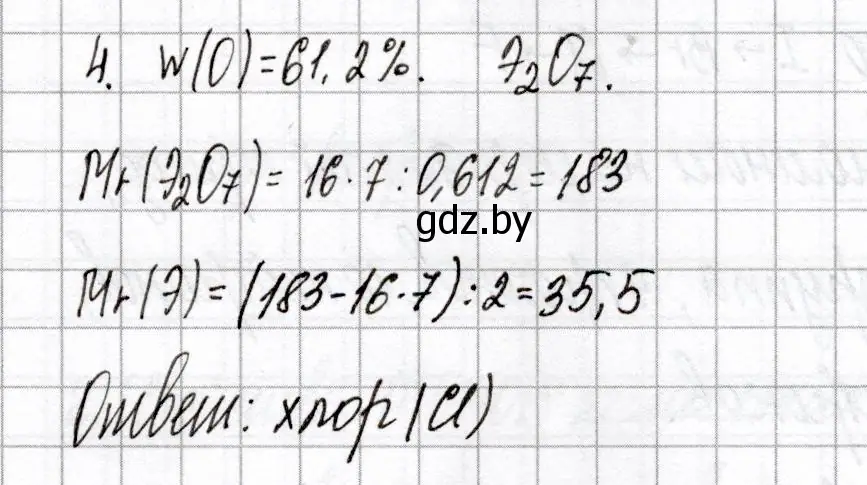 4. W(O)=61,2%. Э₂O₇.
Mr(Э₂O₇)= 16·7:0,612=183
gdz.by
Mr(Э)=(183-16·7):2=35,5
Ответ: хлор (Cl)